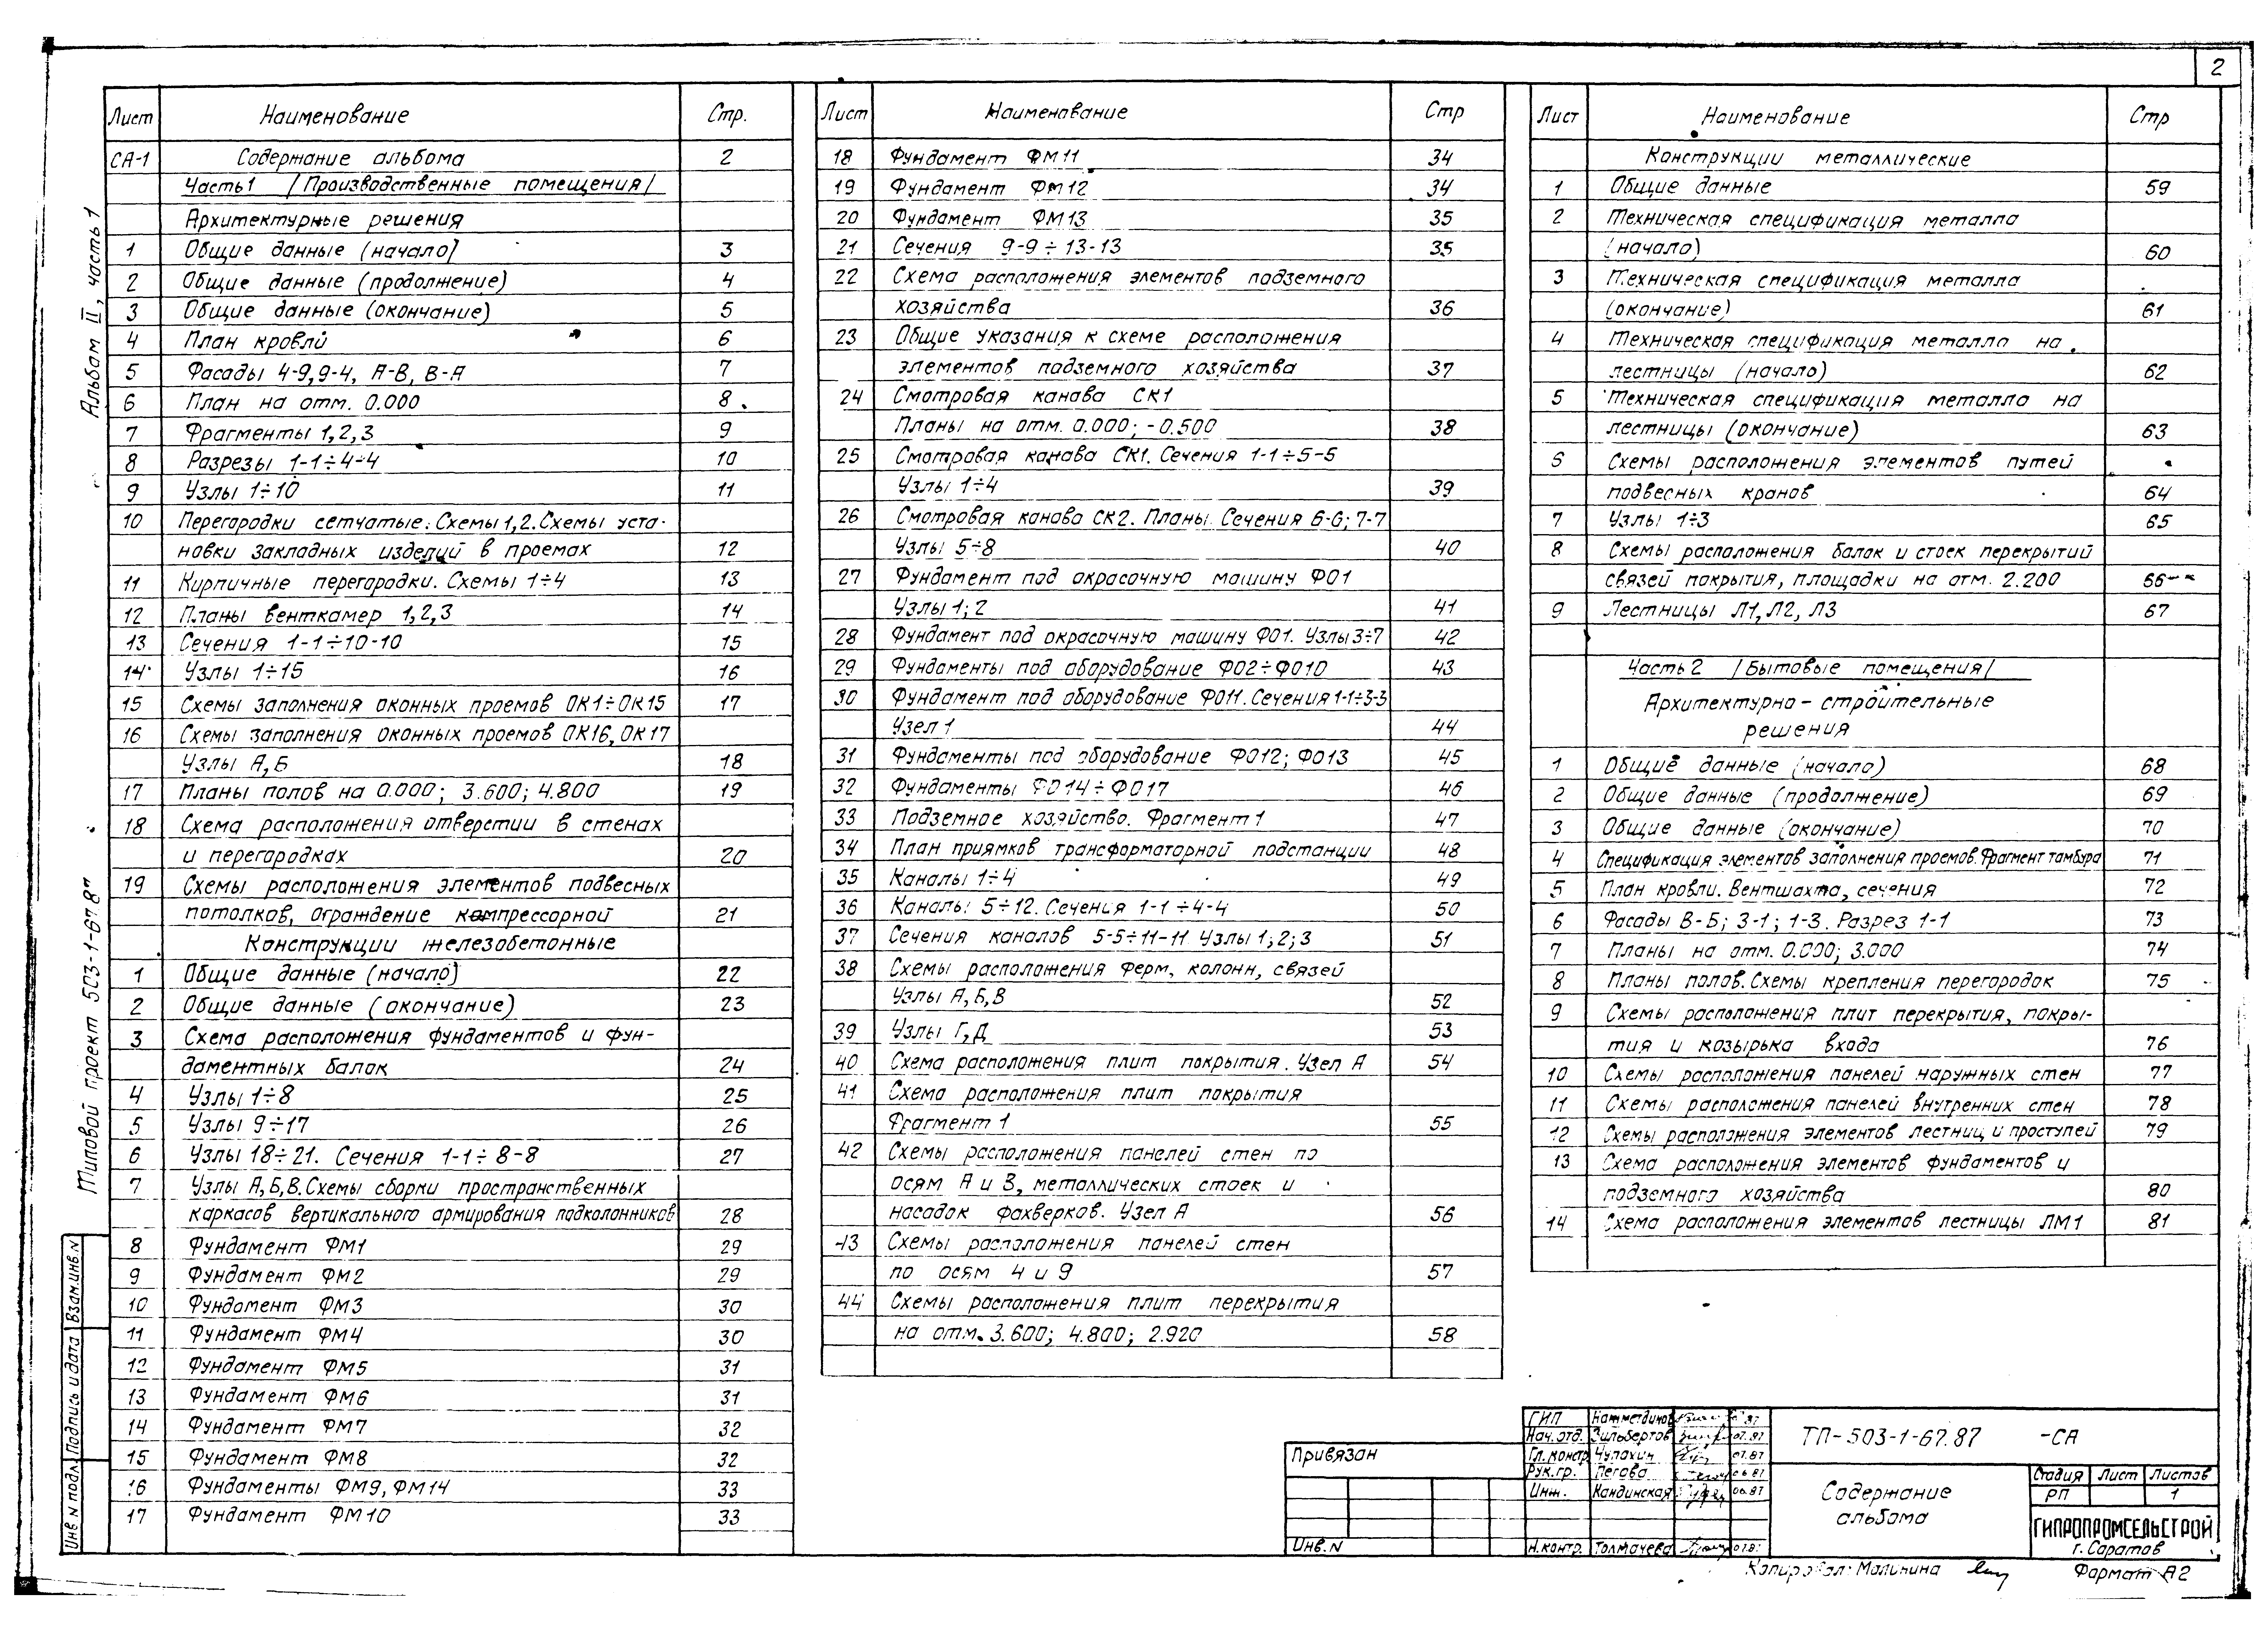 2
Альбом II, часть 1
Типовой проект 503-1-67.87
Лист Наименование Стр.
СА-1 Содержание альбома 2
Часть 1 /Производственные помещения/
Архитектурные решения
1 Общие данные (начало) 3
2 Общие данные (продолжение) 4
3 Общие данные (окончание) 5
4 План кровли 6
5 Фасады 4-9, 9-4, А-В, В-А 7
6 План на отм. 0.000 8
7 Фрагменты 1,2,3 9
8 Разрезы 1-1÷4-4 10
9 Узлы 1÷10 11
10 Перегородки сетчатые. Схемы 1,2. Схемы уста-
новки закладных изделий в проемах 12
11 Кирпичные перегородки. Схемы 1÷4 13
12 Планы венткамер 1,2,3 14
13 Сечения 1-1÷10-10 15
14 Узлы 1÷15 16
15 Схемы заполнения оконных проемов ОК1÷ОК15 17
16 Схемы заполнения оконных проемов ОК16, ОК17
Узлы А,Б 18
17 Планы полов на 0.000; 3.600; 4.800 19
18 Схема расположения отверстии в стенах
и перегородках 20
19 Схемы расположения элементов подвесных
потолков, ограждение компрессорной 21
Конструкции железобетонные
1 Общие данные (начало) 22
2 Общие данные (окончание) 23
3 Схема расположения фундаментов и фун-
даментных балок 24
4 Узлы 1÷8 25
5 Узлы 9÷17 26
6 Узлы 18÷21. Сечения 1-1÷8-8 27
7 Узлы А,Б,В. Схемы сборки пространственных
каркасов вертикального армирования подколонников 28
8 Фундамент ФМ1 29
9 Фундамент ФМ2 29
10 Фундамент ФМ3 30
11 Фундамент ФМ4 30
12 Фундамент ФМ5 31
13 Фундамент ФМ6 31
14 Фундамент ФМ7 32
15 Фундамент ФМ8 32
16 Фундаменты ФМ9, ФМ14 33
17 Фундамент ФМ10 33
Лист Наименование Стр
18 Фундамент ФМ11 34
19 Фундамент ФМ12 34
20 Фундамент ФМ13 35
21 Сечения 9-9÷13-13 35
22 Схема расположения элементов подземного
хозяйства 36
23 Общие указания к схеме расположения
элементов подземного хозяйства 37
24 Смотровая канава СК1
Планы на отм. 0.000; -0.500 38
25 Смотровая канава СК1. Сечения 1-1÷5-5
Узлы 1÷4 39
26 Смотровая канава СК2. Планы. Сечения 6-6; 7-7
Узлы 5÷8 40
27 Фундамент под окрасочную машину ФО1
Узлы 1; 2 41
28 Фундамент под окрасочную машину ФО1. Узлы 3÷7 42
29 Фундаменты под оборудование ФО2÷ФО10 43
30 Фундамент под оборудование ФО11. Сечения 1-1÷3-3
Узел 1 44
31 Фундаменты под оборудование ФО12; ФО13 45
32 Фундаменты ФО14÷ФО17 46
33 Подземное хозяйство. Фрагмент 1 47
34 План приямков трансформаторной подстанции 48
35 Каналы 1÷4 49
36 Каналы 5÷12. Сечения 1-1÷4-4 50
37 Сечения каналов 5-5÷11-11 Узлы 1; 2; 3 51
38 Схемы расположения ферм, колонн, связей
Узлы А,Б,В 52
39 Узлы Г,Д 53
40 Схема расположения плит покрытия. Узел А 54
41 Схема расположения плит покрытия
Фрагмент 1 55
42 Схемы расположения панелей стен по
осям А и В, металлических стоек и
насадок фахверков. Узел А 56
43 Схемы расположения панелей стен
по осям 4 и 9 57
44 Схемы расположения плит перекрытия
на отм. 3.600; 4.800; 2.920 58
Лист Наименование Стр
Конструкции металлические
1 Общие данные 59
2 Техническая спецификация металла
(начало) 60
3 Техническая спецификация металла
(окончание) 61
4 Техническая спецификация металла на
лестницы (начало) 62
5 Техническая спецификация металла на
лестницы (окончание) 63
6 Схемы расположения элементов путей
подвесных кранов 64
7 Узлы 1÷3 65
8 Схемы расположения балок и стоек перекрытий
связей покрытия, площадки на отм. 2.200 66
9 Лестницы Л1, Л2, Л3 67
Часть 2 /Бытовые помещения/
Архитектурно-строительные
решения
1 Общие данные (начало) 68
2 Общие данные (продолжение) 69
3 Общие данные (окончание) 70
4 Спецификация элементов заполнения проемов. Фрагмент тамбура 71
5 План кровли. Вентшахта, сечения 72
6 Фасады В-Б; 3-1; 1-3. Разрез 1-1 73
7 Планы на отм. 0.000; 3.000 74
8 Планы полов. Схемы крепления перегородок 75
9 Схемы расположения плит перекрытия, покры-
тия и козырька входа 76
10 Схемы расположения панелей наружных стен 77
11 Схемы расположения панелей внутренних стен 78
12 Схемы расположения элементов лестниц и проступей 79
13 Схема расположения элементов фундаментов и
подземного хозяйства 80
14 Схема расположения элементов лестницы ЛМ1 81
Взам.инв.N
Подпись и дата
Инв N подл.
Привязан
Инв. N
ГИП
Нач. отд. Зильбертов 07.87
Гл. констр. Чупахин 07.87
Рук. гр. Пегова 06.87
Инж. Кандинская 06.87
Н. контр. Толмачева
ТП-503-1-67.87 -СА
Содержание
альбома
Стадия Лист Листов
РП 1
ГИПРОПРОМСЕЛЬСТРОЙ
г. Саратов
Копировал: Малинина
Формат А2